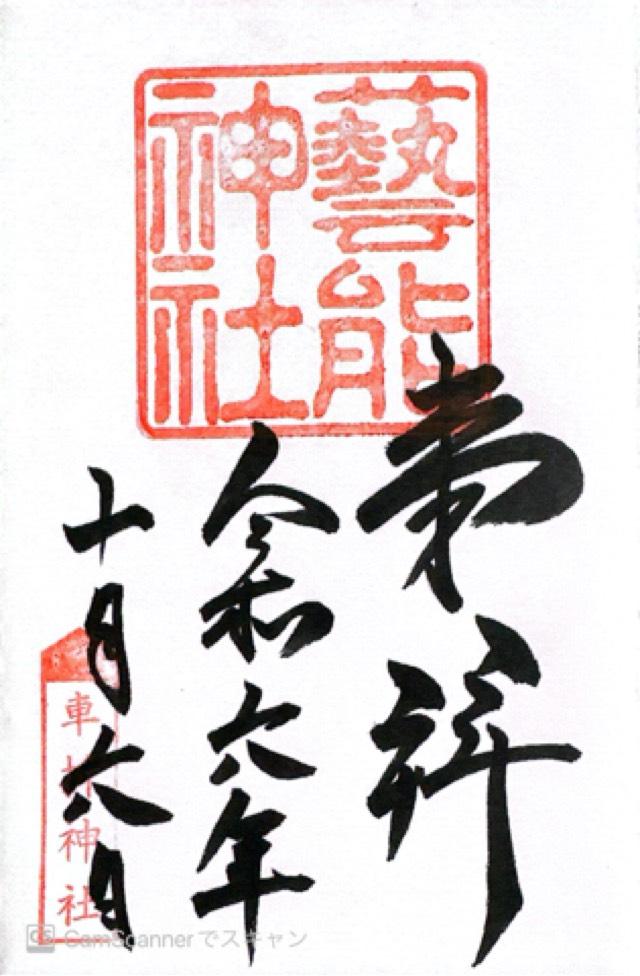 藝能
神社
奉拝
令和六年
十月六日
車折神社
CS CamScannerでスキャン